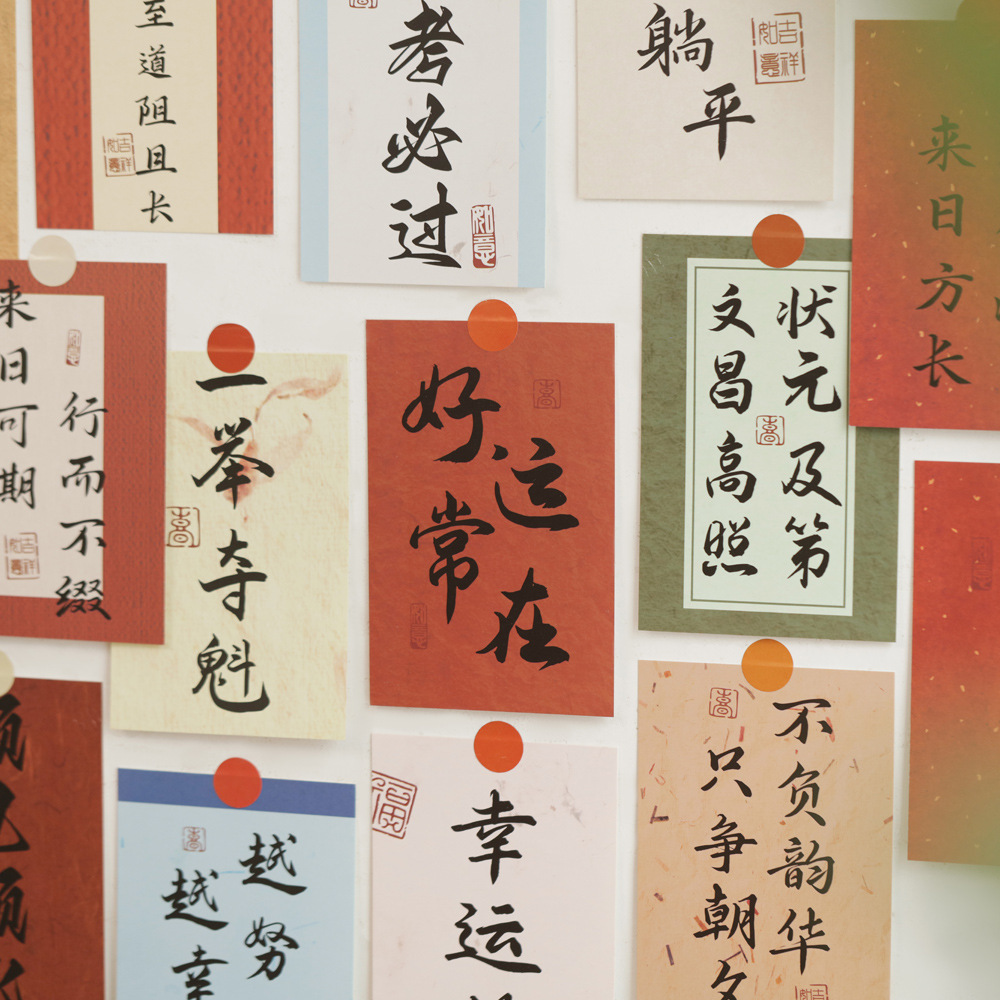 至道阻且长
吉祥如意
考必过
如意
躺平
吉祥如意
来日方长
行而不缀
来日可期
吉祥如意
一举夺魁
好运常在
状元及第
文昌高照
越努
越幸
福
幸运
不负韵华
只争朝夕